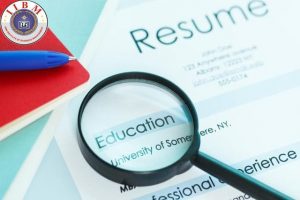 IIBM
Resume
John Doe
123 Anywhere avenue
Albany
555-0174
Education
University of Somewhere, NY.
Professional experience